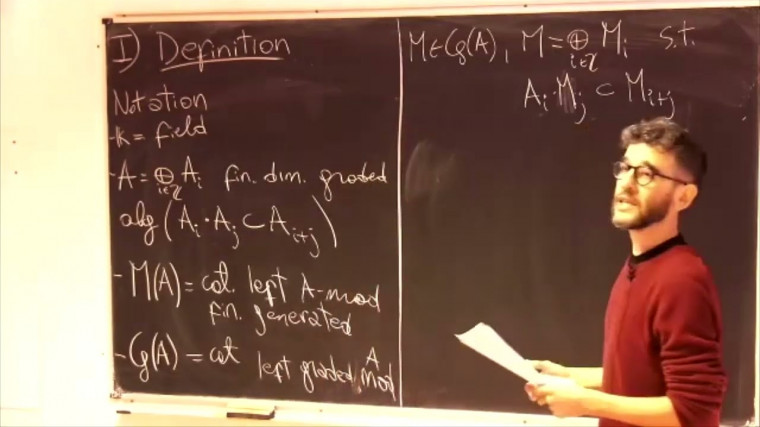 I) Definition
Notation
- k = field
- A = ⊕ Aᵢ fin. dim. graded
i∈ℤ
alg (Aᵢ · Aⱼ ⊂ Aᵢ₊ⱼ)
- M(A) = cat. left A-mod
fin. generated
- G(A) = cat left graded A mod
M ∈ G(A), M = ⊕ Mᵢ s.t.
i∈ℤ
Aᵢ · Mⱼ ⊂ Mᵢ₊ⱼ